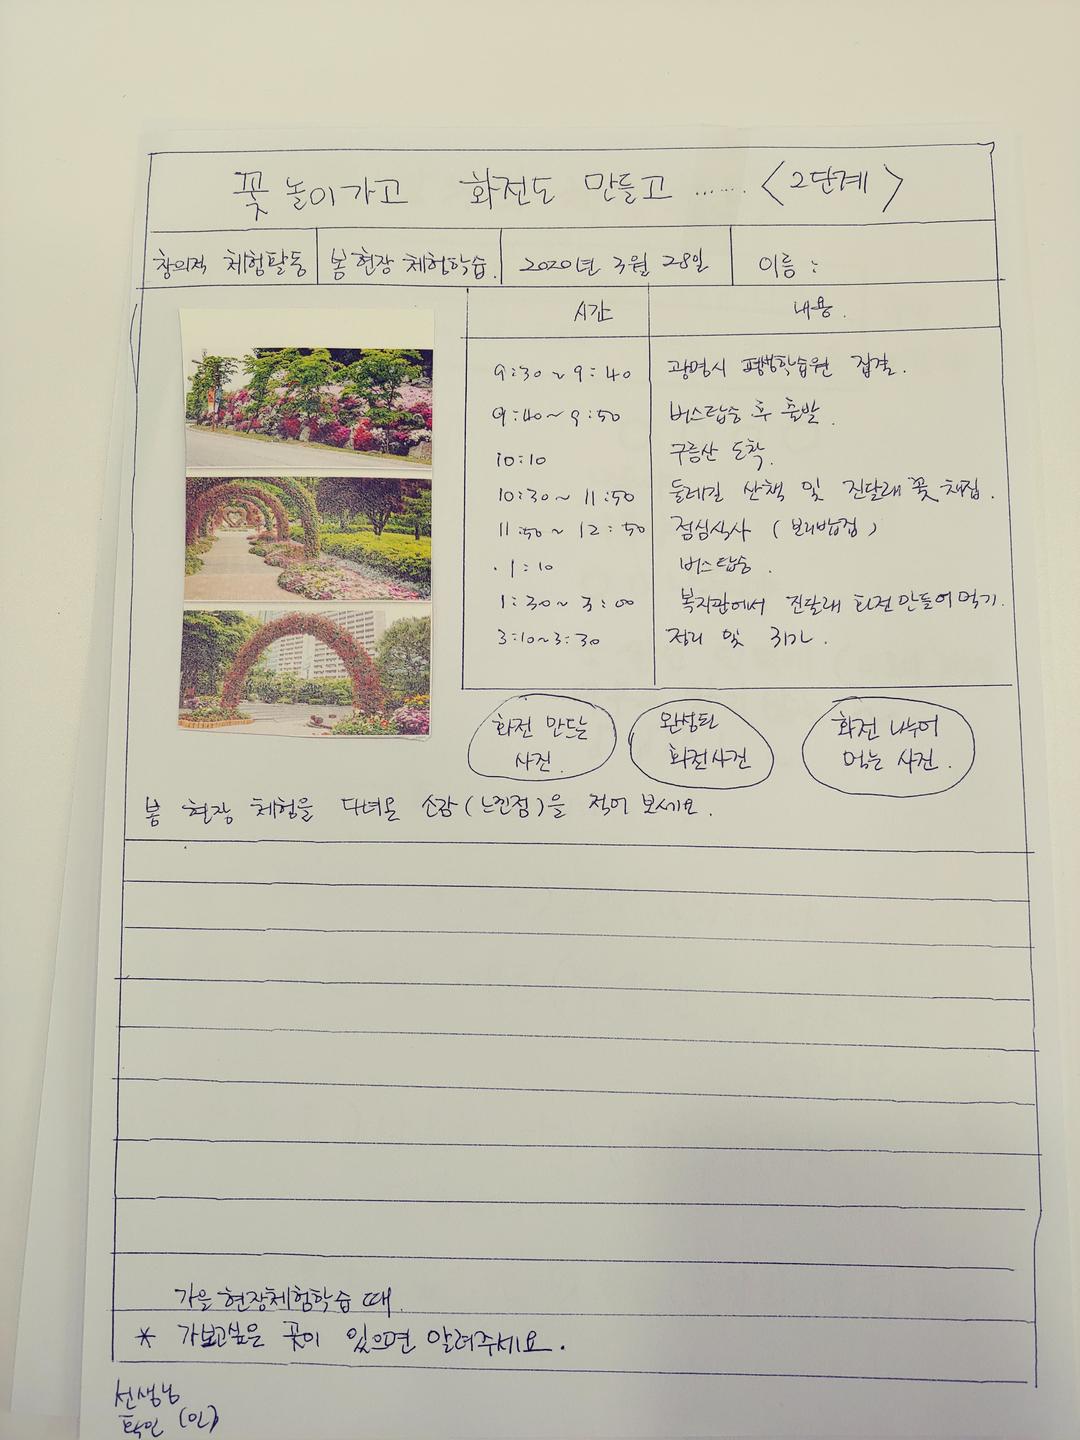 꽃놀이가고 화전도 만들고 ...... <2단계>
창의적 체험활동 봄 현장 체험학습. 2020년 3월 28일 이름 :
시간 내용.
9:30~9:40 광명시 평생학습원 집결.
9:40~9:50 버스탑승 후 출발.
10:10 구름산 도착.
10:30~11:50 둘레길 산책 및 진달래 꽃 채집.
11:50~12:50 점심식사 (보리밥집)
1:10 버스탑승.
1:30~3:00 복지관에서 진달래 화전만들어 먹기.
3:10~3:30 정리 및 귀가.
화전 만드는 사진.
완성된 화전사진
화전 나누어 먹는 사진.
봄 현장 체험을 다녀온 소감(느낀점)을 적어 보세요.
가을 현장체험학습 때
* 가보고싶은 곳이 있으면 알려주세요.
선생님
확인 (인)